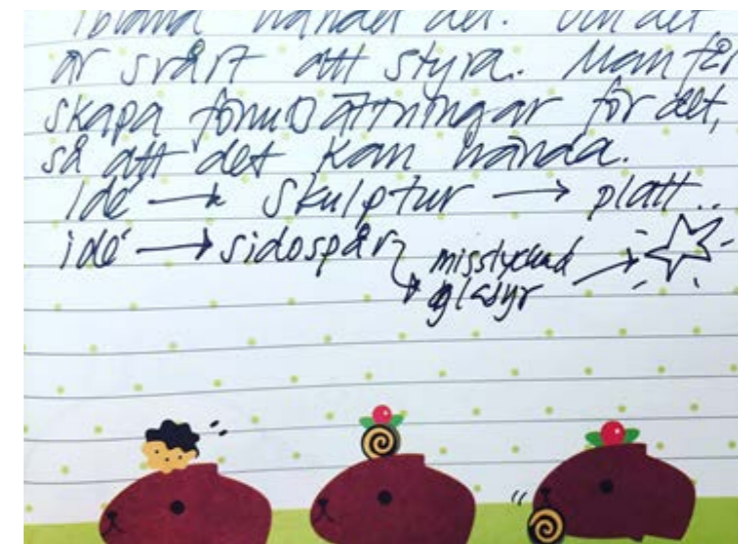 Ibland händer det. Och det
är svårt att styra. Man får
skapa förutsättningar för det,
så att det kan hända.
Idé → skulptur → platt..
idé → sidospår
misslyckad
glasyr →